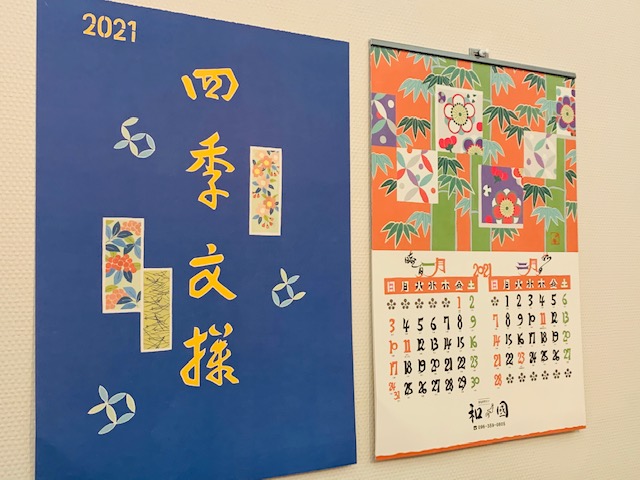 2021
四
季
文
様
睦月 一月 2021 二月
日 月 火 水 木 金 土
1 2
3 4 5 6 7 8 9
10 11 12 13 14 15 16
17 18 19 20 21 22 23
24 25 26 27 28 29 30
31
日 月 火 水 木 金 土
1 2 3 4 5 6
7 8 9 10 11 12 13
14 15 16 17 18 19 20
21 22 23 24 25 26 27
28
和 國